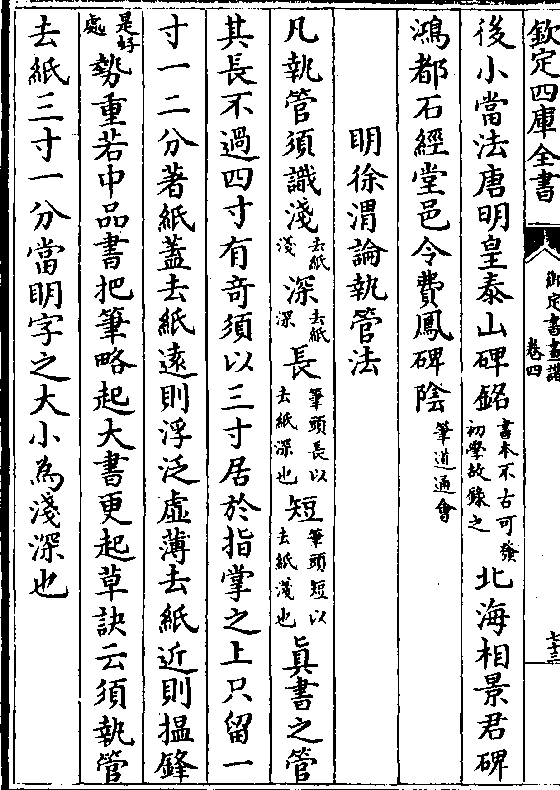 欽定四庫全書
御定書畫譜
卷四
七十三
後小當法唐明皇泰山碑銘書本不古可發初學故錄之北海相景君碑
鴻都石經堂邑令費鳳碑陰筆道通會
明徐渭論執管法
凡執管須識淺去紙淺深去紙深長筆頭長以去紙深也短筆頭短以去紙淺也眞書之管
其長不過四寸有奇須以三寸居於指掌之上只留一
寸一二分著紙蓋去紙遠則浮泛虛薄去紙近則搵鋒
是好處勢重若中品書把筆略起大書更起草訣云須執管
去紙三寸一分當明字之大小為淺深也